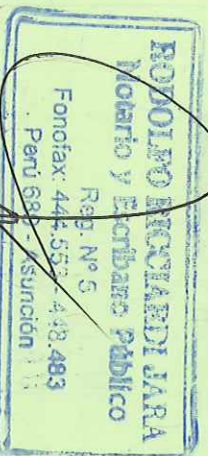 RODOLFO RICCIARDI JARA
Notario y Escribano Público
Reg. Nº 5
Fonofax: 448.483
Perú 689 - Asunción